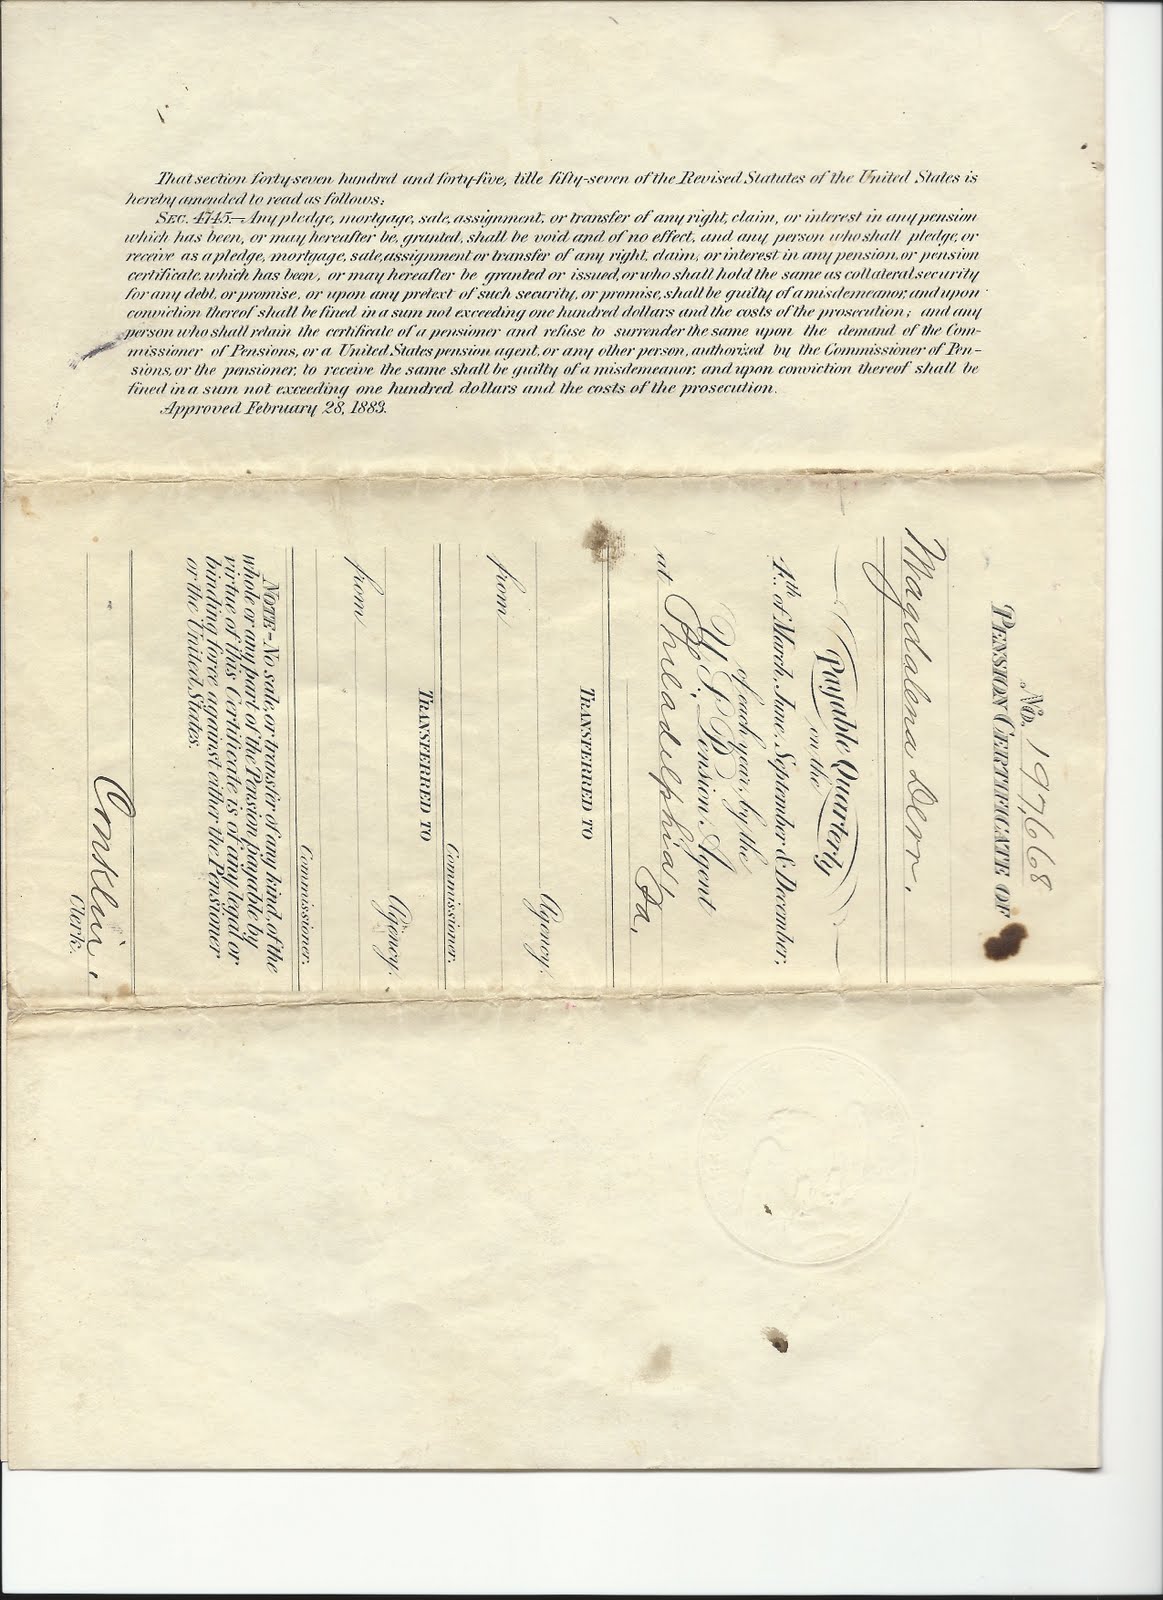 That section forty-seven hundred and forty-five, title fifty-seven of the Revised Statutes of the United States is
hereby amended to read as follows:
SEC. 4745.—Any pledge, mortgage, sale, assignment, or transfer of any right, claim, or interest in any pension
which has been, or may hereafter be, granted, shall be void and of no effect, and any person who shall pledge, or
receive as a pledge, mortgage, sale, assignment or transfer of any right, claim, or interest in any pension, or pension
certificate, which has been, or may hereafter be granted or issued, or who shall hold the same as collateral security
for any debt, or promise, or upon any pretext of such security, or promise, shall be guilty of a misdemeanor, and upon
conviction thereof shall be fined in a sum not exceeding one hundred dollars and the costs of the prosecution; and any
person who shall retain the certificate of a pensioner and refuse to surrender the same upon the demand of the Com-
missioner of Pensions, or a United States pension agent, or any other person, authorized by the Commissioner of Pen-
sions, or the pensioner, to receive the same shall be guilty of a misdemeanor, and upon conviction thereof shall be
fined in a sum not exceeding one hundred dollars and the costs of the prosecution.
Approved February 28, 1883.
No. 197,668
PENSION CERTIFICATE OF
Magdalena Derr.
Payable Quarterly
on the
4th of March, June, September & December,
of each year, by the
U.S. Pension Agent
at Philadelphia,
Pa.
TRANSFERRED TO
Agency.
from
Commissioner.
TRANSFERRED TO
Agency.
from
Commissioner.
NOTE—No sale, or transfer of any kind, of the
whole or any part of the Pension payable by
virtue of this Certificate is of any legal or
binding force against either the Pensioner
or the United States.
Conklin.
Clerk.